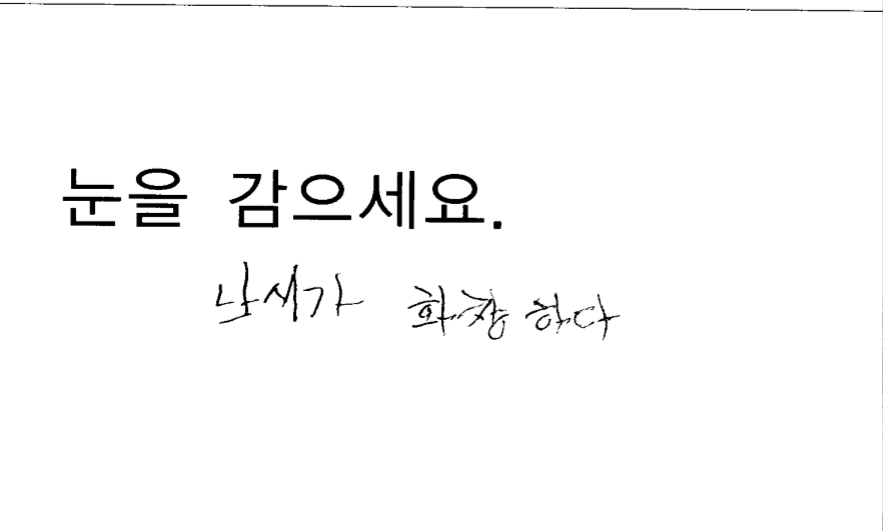 눈을 감으세요.
날씨가 화창하다